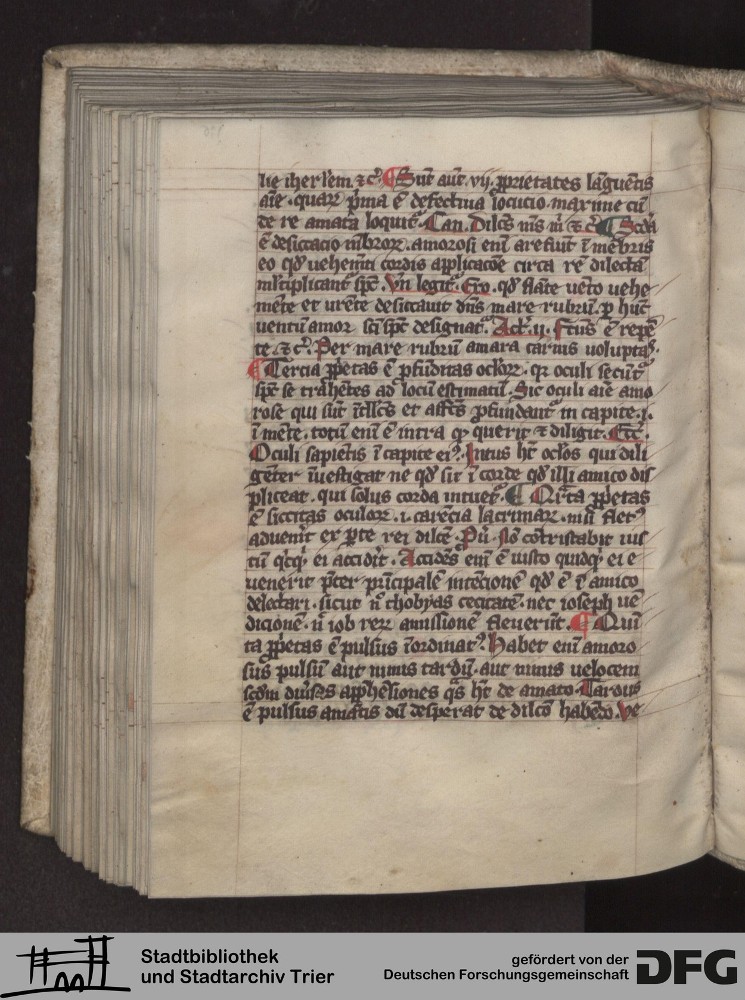 lie iherl'em ⁊c᷒. ¶ Sūt aūt .vij. ꝓprietates lāguētis
aīe . quaꝝ p̄ma ē defectiua locucio maxime cū
de re amata loquit᷑. Can. Dilcūs m̄s m̄ ⁊ c᷒ ¶ Scd̓a
ē desiccacio mēbroꝝ . amorosi enī arefiūt ī mēbris
eo qd̓ uehemēti cordis applicacōe circa rē dilectā
ml̓tiplicant᷑ sp̄c . Vn̄ legit᷑ . Exo . qd̓ flāte uēto uehe
mēte et urēte desiccauit dn̄s mare rubrū . ꝑ hūc
uentū amor sc̄i sp̄c designat᷑ . Act᷒ . ij . Fc̄us ē repē
te ⁊ c᷒ . Per mare rubrū amara carnis uoluptas .
¶ Tercia ꝓp̄etas ē ꝓfūditas ocl̓oꝝ . qꝛ oculi secūt᷑
sp̄c se trahētes ad locū estimatiū . Sic oculi aīe amo
rose qui sūt ītll̓cs et affc̄s ꝓfundant᷑ in capite . i .
ī mēte . totū enī ē intra qd̓ querit ⁊ diligit . Ecc̄ .
Oculi sapiētis ī capite ei᷒ . Intus h̄t ocl̓os qui dili
gēter īuestigat ne qd̓ sit ī corde qd̓ illi amico dis
pliceat . qui solus corda intuet᷑ . ¶ Qr̄ta ꝓp̄etas
ē siccitas oculoꝝ . i . carēcia lacrimaꝝ . nisi flet᷒
aduenīt ex ꝑte rei dilcē . Pū . Nō cōtristabit ius
tū qͥcqͥd ei accidīt . Accidēs enī ē iusto quidqͥd ei e
uenerit p̄ter pͥncipalē intēcionē qd̓ ē ī amico
delectari . sicut n̄ thobyas cecitatē . nec ioseph uē
dicionē . n̄ iob reꝝ amissionē fleuerūt . ¶ Quī
ta ꝓp̄etas ē pulsus īordinat᷒ . Habet enī amoro
sus pulsū aut nimis tardū . aut nimis uelocem
scd̓m diūsas app̄hēsiones qͣs h̄t de amato . Tardus
ē pulsus amātis dū desperat de dilcō habēdo . Ve
Stadtbibliothek
und Stadtarchiv Trier
gefördert von der
Deutschen Forschungsgemeinschaft
DFG